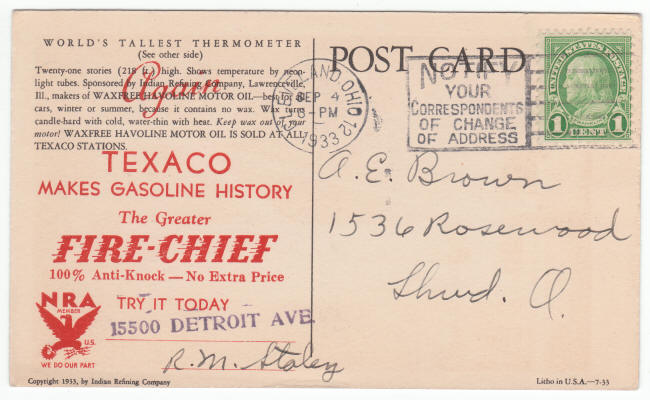 WORLD'S TALLEST THERMOMETER
(See other side)
Twenty-one stories (218 ft.) high. Shows temperature by neon-
light tubes. Sponsored by Indian Refining Company, Lawrenceville,
Ill., makers of WAXFREE HAVOLINE MOTOR OIL—best for all
cars, winter or summer, because it contains no wax. Wax turns
candle-hard with cold, water-thin with heat. Keep wax out of your
motor! WAXFREE HAVOLINE MOTOR OIL IS SOLD AT ALL
TEXACO STATIONS.
Again
TEXACO
MAKES GASOLINE HISTORY
The Greater
FIRE-CHIEF
100% Anti-Knock — No Extra Price
NRA
MEMBER
U.S.
WE DO OUR PART
TRY IT TODAY
15500 DETROIT AVE.
R. M. Staley
Copyright 1933, by Indian Refining Company
POST CARD
CLEVELAND, OHIO 12
SEP 4
6-PM
1933
NOTIFY
YOUR
CORRESPONDENTS
OF CHANGE
OF ADDRESS
UNITED STATES POSTAGE
1 CENT 1
A. E. Brown
1536 Rosewood
Lkwd. O.
Litho in U.S.A.—7-33